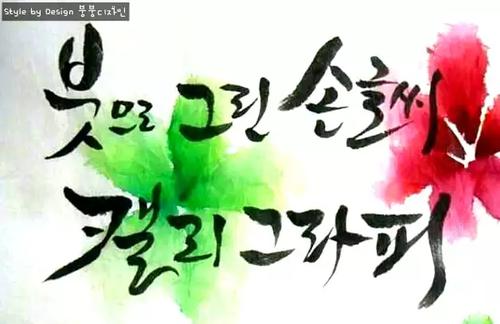 Style by Design 붕붕디자인
붓으로 그린 손글씨
캘리그라피